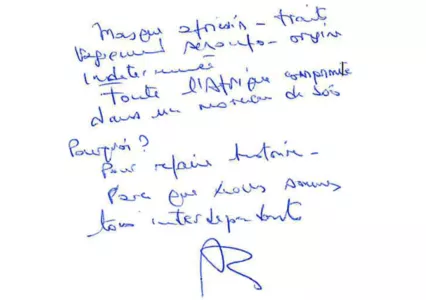 Masque africain – trait
vaguement sénoufo – origine
indéterminée
Toute l'Afrique comprimée
dans un morceau de bois
Pourquoi?
Pour refaire histoire –
Parce que nous sommes
tous interdépendants